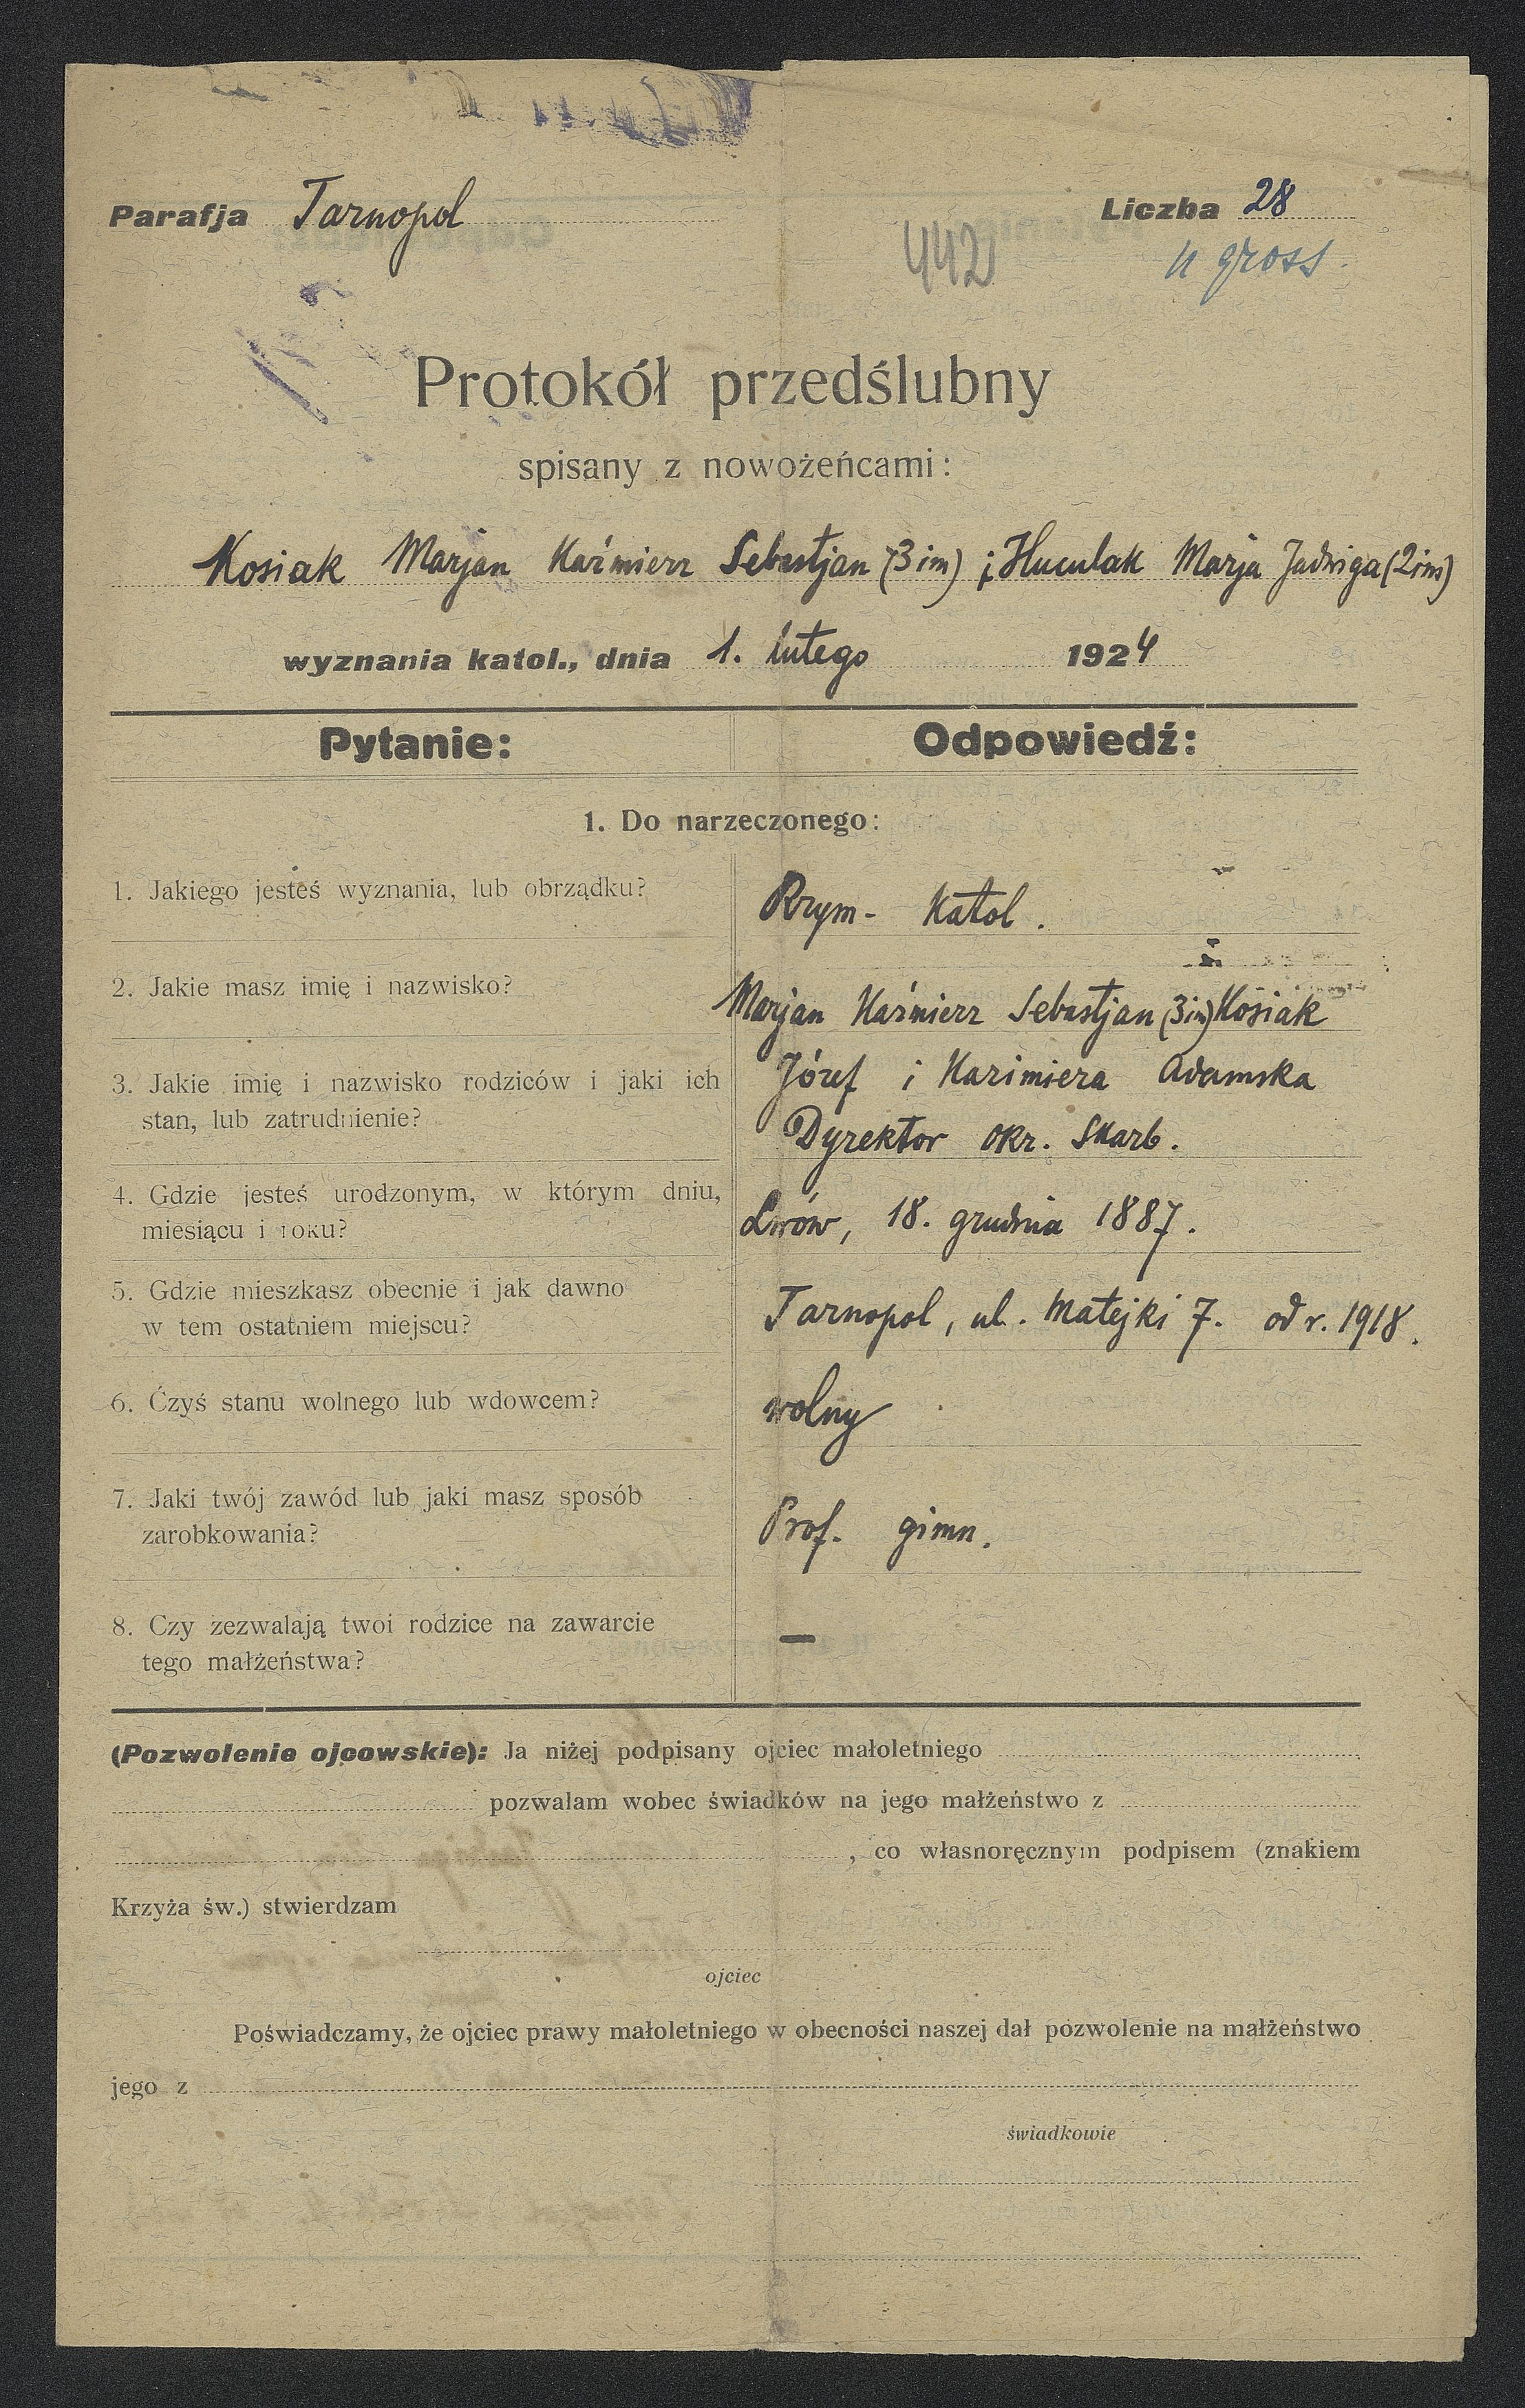 Parafja Tarnopol Liczba 28
442 11 gross.
Protokół przedślubny
spisany z nowożeńcami:
Kosiak Marjan Kaźmierz Sebastjan (3 im) i Huculak Marja Jadwiga (2 im)
wyznania katol., dnia 1. lutego 1924
Pytanie: Odpowiedź:
1. Do narzeczonego:
1. Jakiego jesteś wyznania, lub obrządku? Rzym- Katol.
2. Jakie masz imię i nazwisko? Marjan Kaźmierz Sebastjan (3 im) Kosiak
3. Jakie imię i nazwisko rodziców i jaki ich Józef i Kazimiera Adamska
stan, lub zatrudnienie? Dyrektor okr. Skarb.
4. Gdzie jesteś urodzonym, w którym dniu,
miesiącu i roku? Lwów, 18. grudnia 1887.
5. Gdzie mieszkasz obecnie i jak dawno
w tem ostatniem miejscu? Tarnopol, ul. Matejki 7. od r. 1918.
6. Czyś stanu wolnego lub wdowcem? wolny
7. Jaki twój zawód lub jaki masz sposób
zarobkowania? Prof. gimn.
8. Czy zezwalają twoi rodzice na zawarcie —
tego małżeństwa?
(Pozwolenie ojcowskie): Ja niżej podpisany ojciec małoletniego
pozwalam wobec świadków na jego małżeństwo z
, co własnoręcznym podpisem (znakiem
Krzyża św.) stwierdzam
ojciec
Poświadczamy, że ojciec prawy małoletniego w obecności naszej dał pozwolenie na małżeństwo
jego z
świadkowie